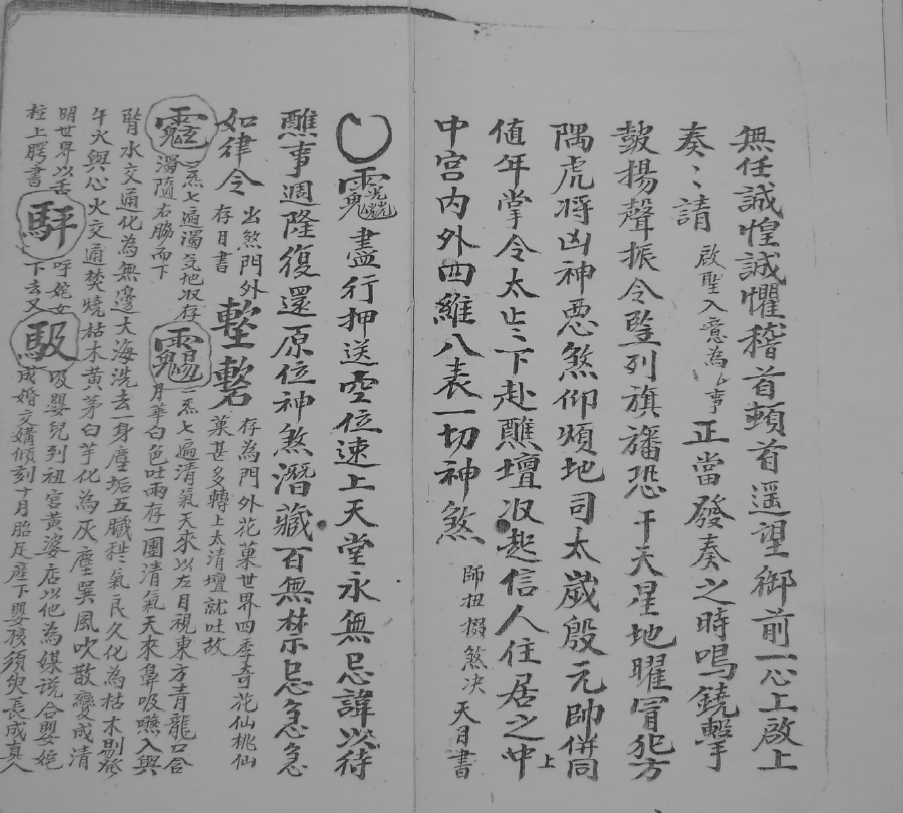 無任誠惶誠懼稽首頓首遥望御前一心上啟上
奏〻請 啟聖入意為 事 正當發奏之時鳴鐃擊
皷揚聲振令竪列旗旛恐干天星地曜冒犯方
隅虎将凶神恶煞仰煩地司太歲殷元帥併同
值年掌令太 下赴醮壇收起信人住居之 上
中宮内外四維八表一切神煞 師扭撮煞决 天月書
盡行押送空位速上天堂永無忌諱以待
醮事週隆復還原位神煞潛藏百無禁忌急急
如律令 存月書 出煞門外 存為門外花菓世界四季奇花仙桃仙
菓甚多轉上太清壇就吐故
炁七遍濁气地収存
濁隨右脇而下 一炁七遍清氣天來以左目視東方青龍口含
月華白色吐兩存一團清氣天來鼻吸嚥入與
腎水交通化為無邊大海洗去一身塵垢五臟 氣民久化為枯木剔發
午火與心火交通焚燒枯木黃茅白竿化為灰塵巽風吹散變成清
明世界以舌 呼 女 吸嬰兒到祖宮黃婆店以他為媒说合嬰姹
柱上腭書 下去又 成婚交媾傾刻十月胎足産下嬰孩須臾長成真人